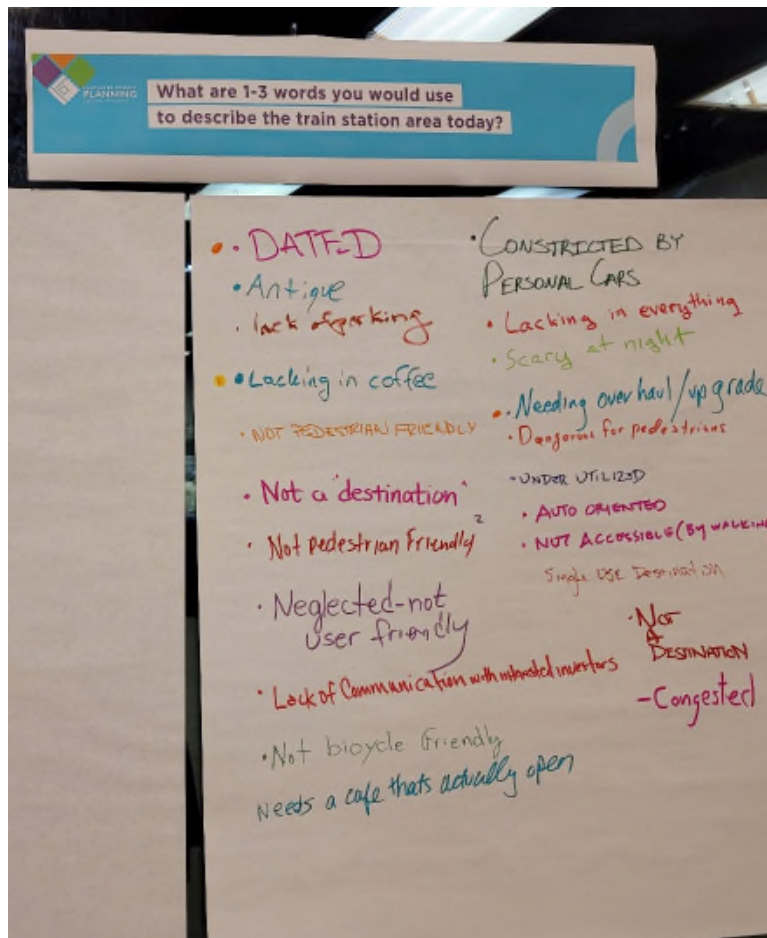 PLANNING
What are 1-3 words you would use
to describe the train station area today?
• DATED
• Antique
• lack of parking
• Lacking in coffee
• NOT PEDESTRIAN FRIENDLY
• Not a "destination"
• Not pedestrian Friendly 2
• Neglected-not
user friendly
• Lack of Communication with interested investors
• Not bicycle friendly
Needs a cafe thats actually open
• CONSTRICTED BY
PERSONAL CARS
• Lacking in everything
• Scary at night
• Needing overhaul/upgrade
• Dangerous for pedestrians
• UNDER UTILIZED
• AUTO ORIENTED
• NOT ACCESSIBLE (BY WALKING
Single USE Destination
• NOT
A
DESTINATION
- Congested